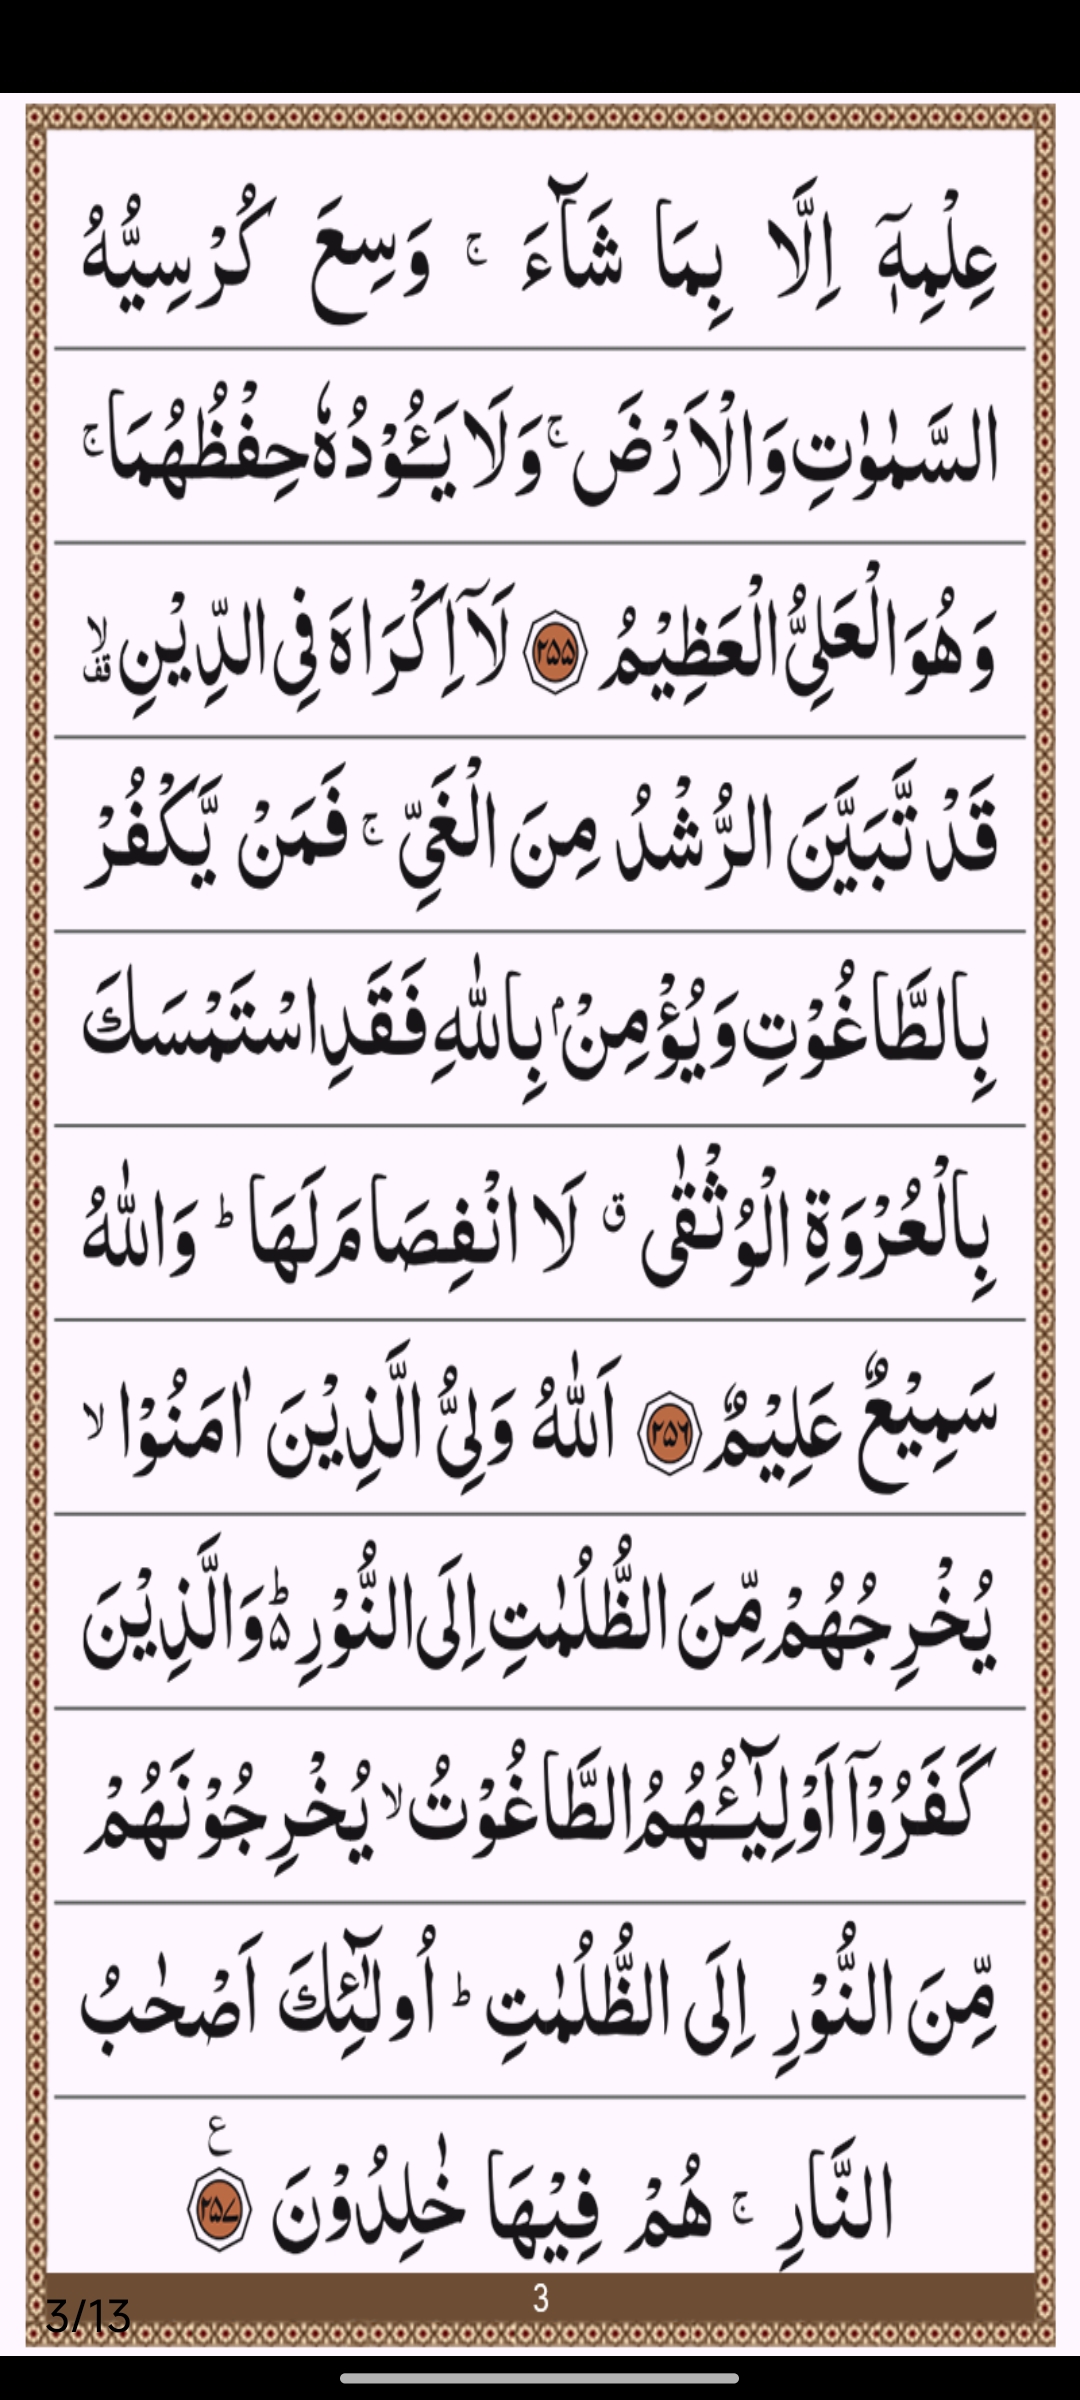 عِلْمِهٖۤ اِلَّا بِمَا شَآءَ ۚ وَسِعَ كُرْسِيُّهُ
السَّمٰوٰتِ وَالْاَرْضَ ۚ وَلَا يَـُٔوْدُهٗ حِفْظُهُمَا ۚ
وَهُوَ الْعَلِيُّ الْعَظِيْمُ ۝۲۵۵ لَاۤ اِكْرَاهَ فِي الدِّيْنِ ۙقف
قَدْ تَّبَيَّنَ الرُّشْدُ مِنَ الْغَيِّ ۚ فَمَنْ يَّكْفُرْ
بِالطَّاغُوْتِ وَيُؤْمِنْۢ بِاللّٰهِ فَقَدِ اسْتَمْسَكَ
بِالْعُرْوَةِ الْوُثْقٰى ق لَا انْفِصَامَ لَهَا ؕ وَاللّٰهُ
سَمِيْعٌ عَلِيْمٌ ۝۲۵۶ اَللّٰهُ وَلِيُّ الَّذِيْنَ اٰمَنُوْا ۙ
يُخْرِجُهُمْ مِّنَ الظُّلُمٰتِ اِلَى النُّوْرِ ؕ۬ وَالَّذِيْنَ
كَفَرُوْۤا اَوْلِيٰٓـُٔهُمُ الطَّاغُوْتُ ۙ يُخْرِجُوْنَهُمْ
مِّنَ النُّوْرِ اِلَى الظُّلُمٰتِ ؕ اُولٰٓئِكَ اَصْحٰبُ
النَّارِ ۚ هُمْ فِيْهَا خٰلِدُوْنَ ۝۲۵۷ ع
3
3/13